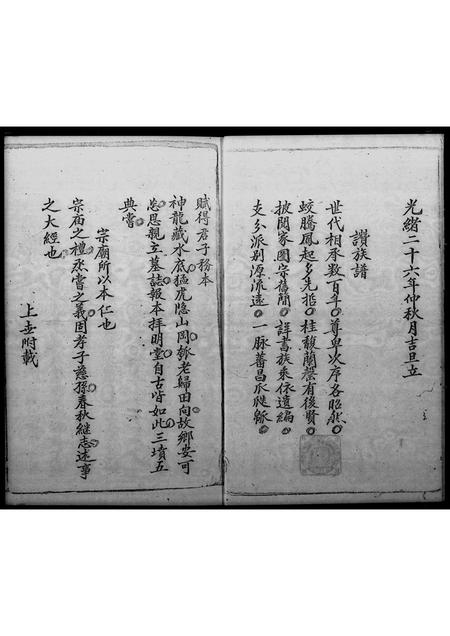 光緒二十六年仲秋月吉旦立
讚族譜
世代相承数百年尊卑次序各昭然
蛟騰鳳起多先哲桂馥蘭馨有後賢
披閱家圖宗舊簡詳書族乘依遺編
支分派别源流遠一脉蕃昌水綿
賦得君子務本
神龍藏水底猛虎隐山岡老歸田向故鄉安可
忘恩親立墓誌報本拜明堂自古皆如此三墳五
典嘗
宗廟所以本仁也
宗庙之禮烝嘗之義固孝子慈孫春秋継志述事
之大經也
上並附載